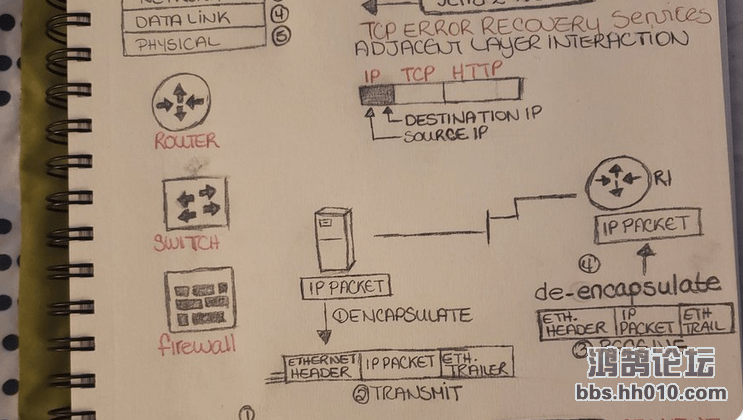 DATA LINK
④
PHYSICAL
⑤
TCP ERROR RECOVERY SERVICES
ADJACENT LAYER INTERACTION
IP TCP HTTP
DESTINATION IP
SOURCE IP
ROUTER
SWITCH
firewall
R1
IP PACKET
④
de-encapsulate
ETH. HEADER
IP PACKET
ETH TRAIL
③
IP PACKET
①ENCAPSULATE
ETHERNET HEADER
IP PACKET
ETH. TRAILER
②TRANSMIT
①
鸿鹄论坛
bbs.hh010.com